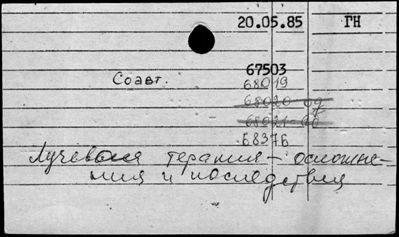 20.05.85 ГН
67503
Соавт. 68019
68020-09
68021-00
68376
Лучевая терапия - осложне-
ния и последствия